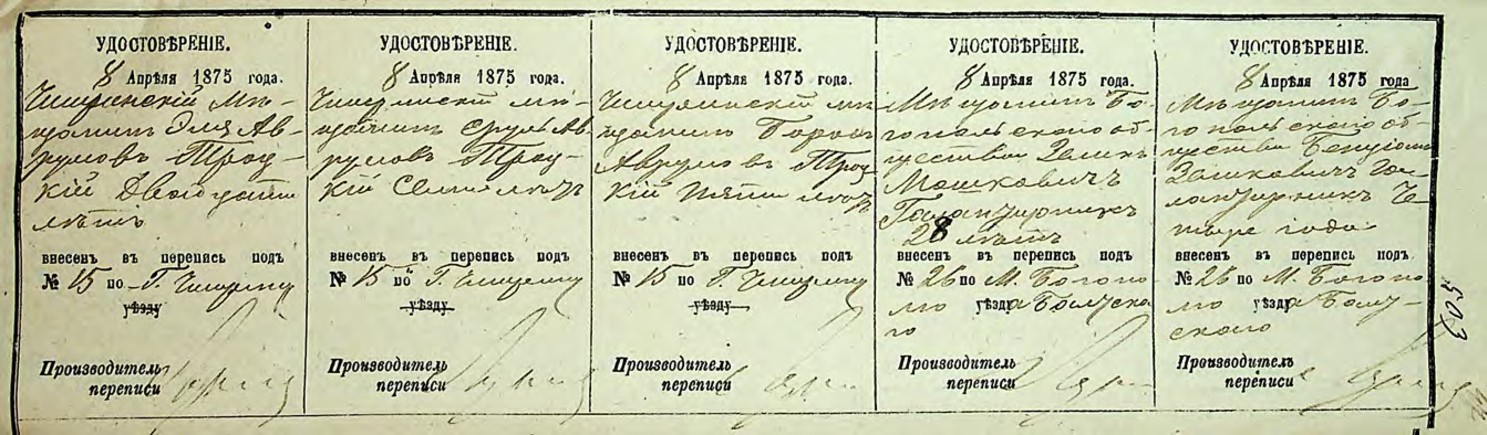 УДОСТОВѢРЕНІЕ.
8 Апрѣля 1875 года.
мѣ-
щанинъ Эля Ав-
румовъ Троц-
кій Двадцати
лѣтъ
внесенъ въ перепись подъ
№ 15 по Г.
уѣзду
Производитель
переписи
УДОСТОВѢРЕНІЕ.
8 Апрѣля 1875 года.
мѣ-
щанинъ Сруль Ав-
румовъ Троц-
кій Семи лѣтъ
внесенъ въ перепись подъ
№ 15 по Г.
уѣзду
Производитель
переписи
УДОСТОВѢРЕНІЕ.
8 Апрѣля 1875 года.
мѣ
щанинъ
Аврумовъ Троц
кій Пяти лѣтъ
внесенъ въ перепись подъ
№ 15 по Г.
уѣзду
Производитель
переписи
УДОСТОВѢРЕНІЕ.
8 Апрѣля 1875 года.
Мѣщанинъ Бо-
гопольскаго об-
щества
Мошковичъ
Галантирникъ
28 лѣтъ
внесенъ въ перепись подъ
№ 26 по М. Богопо
лю уѣзда
го
Производитель
переписи
УДОСТОВѢРЕНІЕ.
8 Апрѣля 1875 года
Мѣщанинъ Бо-
гопольскаго об-
щества
Зеликовичъ Га-
лантирникъ Че-
тыре года
внесенъ въ перепись подъ
№ 26 по М. Богопо
лю уѣзда
скаго
Производитель
переписи
503